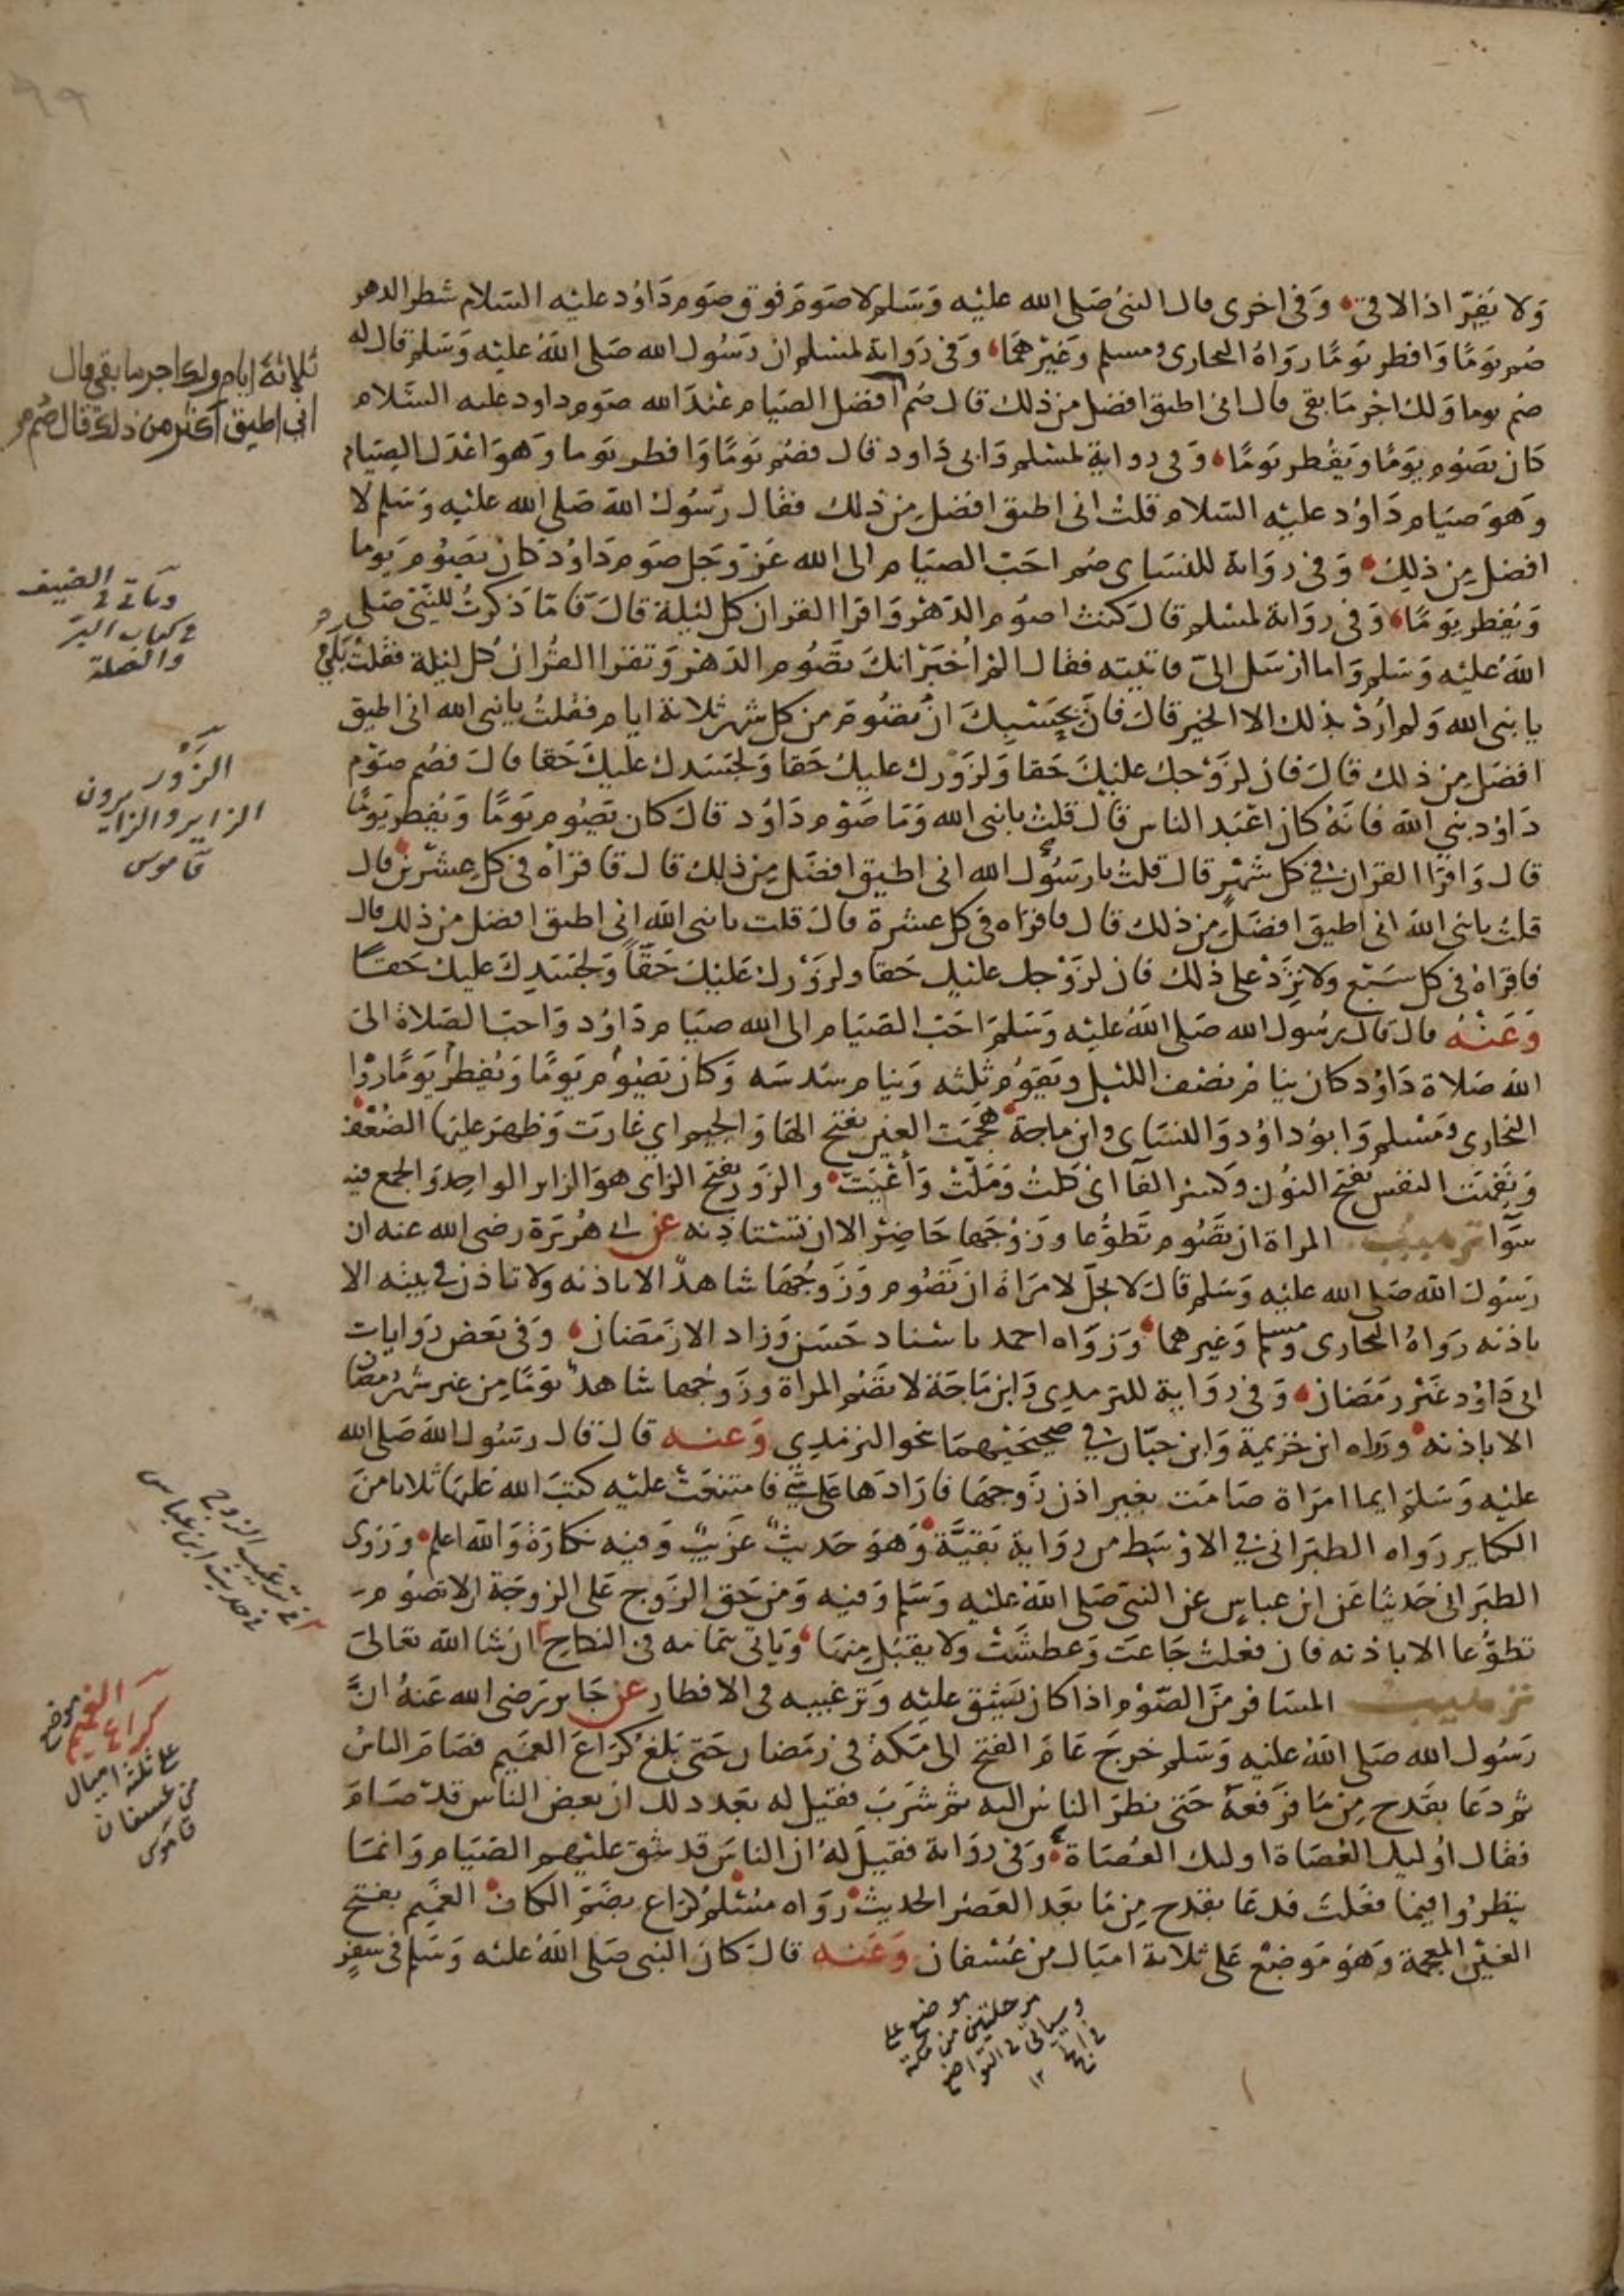 ٩٩
ولا يفر اذا لاقى وفي اخرى قال النبي صلى الله عليه وسلم لا صوم فوق صوم داود عليه السلام شطر الدهر
صم يوما وافطر يوما رواه البخاري ومسلم وغيرهما وفي رواية لمسلم ان رسول الله صلى الله عليه وسلم قال له
صم يوما ولك اجر ما بقي قال اني اطيق افضل من ذلك قال صم افضل الصيام عند الله صوم داود عليه السلام
كان يصوم يوما ويفطر يوما وفي رواية لمسلم وابي داود قال فصم يوما وافطر يوما وهو اعدل الصيام
وهو صيام داود عليه السلام قلت اني اطيق افضل من ذلك فقال رسول الله صلى الله عليه وسلم لا
افضل من ذلك وفي رواية للنساي صم احب الصيام الى الله عز وجل صوم داود كان يصوم يوما
ويفطر يوما وفي رواية لمسلم قال كنت اصوم الدهر واقرا القران كل ليلة قال فاما ذكرت للنبي صلى
الله عليه وسلم واما ارسل الي فاتيته فقال الم اخبر انك تصوم الدهر وتقرا القران كل ليلة فقلت بلى
يا نبي الله ولم ارد بذلك الا الخير قال فان بحسبك ان تصوم من كل شهر ثلاثة ايام فقلت يا نبي الله اني اطيق
افضل من ذلك قال فان لزوجك عليك حقا ولزورك عليك حقا ولجسدك عليك حقا قال فصم صوم
داود نبي الله فانه كان اعبد الناس قال قلت يا نبي الله وما صوم داود قال كان يصوم يوما ويفطر يوما
قال واقرا القران في كل شهر قال قلت يا رسول الله اني اطيق افضل من ذلك قال فاقراه في كل عشرين قال
قلت يا نبي الله اني اطيق افضل من ذلك قال فاقراه في كل عشرة قال قلت يا نبي الله اني اطيق افضل من ذلك قال
فاقراه في كل سبع ولا تزد على ذلك فان لزوجك عليك حقا ولزورك عليك حقا ولجسدك عليك حقا
وعنه قال قال رسول الله صلى الله عليه وسلم احب الصيام الى الله صيام داود واحب الصلاة الى
الله صلاة داود كان ينام نصف الليل ويقوم ثلثه وينام سدسه وكان يصوم يوما ويفطر يوما رواه
البخاري ومسلم وابو داود والنساي وابن ماجة هجمت العين بفتح الها والجيم اي غارت وظهر عليها الضعف
ونفهت النفس بفتح النون وكسر الفا اي كلت وملت واعيت والزور بفتح الزاي هو الزاير الواحد والجمع فيه
سوآ ترهيب المراة ان تصوم تطوعا وزوجها حاضر الا ان تستاذنه عن ابي هريرة رضي الله عنه ان
رسول الله صلى الله عليه وسلم قال لا يحل لامراة ان تصوم وزوجها شاهد الا باذنه ولا تاذن في بيته الا
باذنه رواه البخاري ومسلم وغيرهما ورواه احمد باسناد حسن وزاد الا رمضان وفي بعض روايات
ابي داود غير رمضان وفي رواية للترمدي وابن ماجة لا تصم المراة وزوجها شاهد يوما من غير شهر رمضان
الا باذنه ورواه ابن خزيمة وابن حبان في صحيحيهما بنحو الترمذي وعنه قال قال رسول الله صلى الله
عليه وسلم ايما امراة صامت بغير اذن زوجها فارادها على شي فامتنعت عليه كتب الله عليها ثلاثا من
الكباير رواه الطبراني في الاوسط من رواية بقية وهو حديث غريب وفيه نكارة والله اعلم وروى
الطبراني حديثا عن ابن عباس عن النبي صلى الله عليه وسلم وفيه ومن حق الزوج على الزوجة الا تصوم
تطوعا الا باذنه فان فعلت جاعت وعطشت ولا يقبل منها وياتي بتمامه في النكاح ان شا الله تعالى
ترهيب المسافر من الصوم اذا كان يشق عليه وترغيبه في الافطار عن جابر رضي الله عنه ان
رسول الله صلى الله عليه وسلم خرج عام الفتح الى مكة في رمضان حتى بلغ كراع الغميم فصام الناس
ثم دعا بقدح من ما فرفعه حتى نظر الناس اليه ثم شرب فقيل له بعد ذلك ان بعض الناس قد صام
فقال اوليك العصاة اوليك العصاة وفي رواية فقيل له ان الناس قد شق عليهم الصيام وانما
ينظروا فيما فعلت فدعا بقدح من ما بعد العصر الحديث رواه مسلم كراع بضم الكاف الغميم بفتح
الغين المعجمة وهو موضع على ثلاثة اميال من عسفان وعنه قال كان النبي صلى الله عليه وسلم في سفر
ثلاثة ايام ولك اجر ما بقي قال
اني اطيق اكثر من ذلك قال صم
وياتي في الضيف
في كتاب البر
والصلة
الزور
الزاير والزايرون
قاموس
في ترغيب الزوج
في حديث ابن عباس
كراع الغميم موضع
على ثلثة اميال
من عسفان
قاموس
موضع على
مرحلتين من مكة
وسياتي في التواضع
١٢